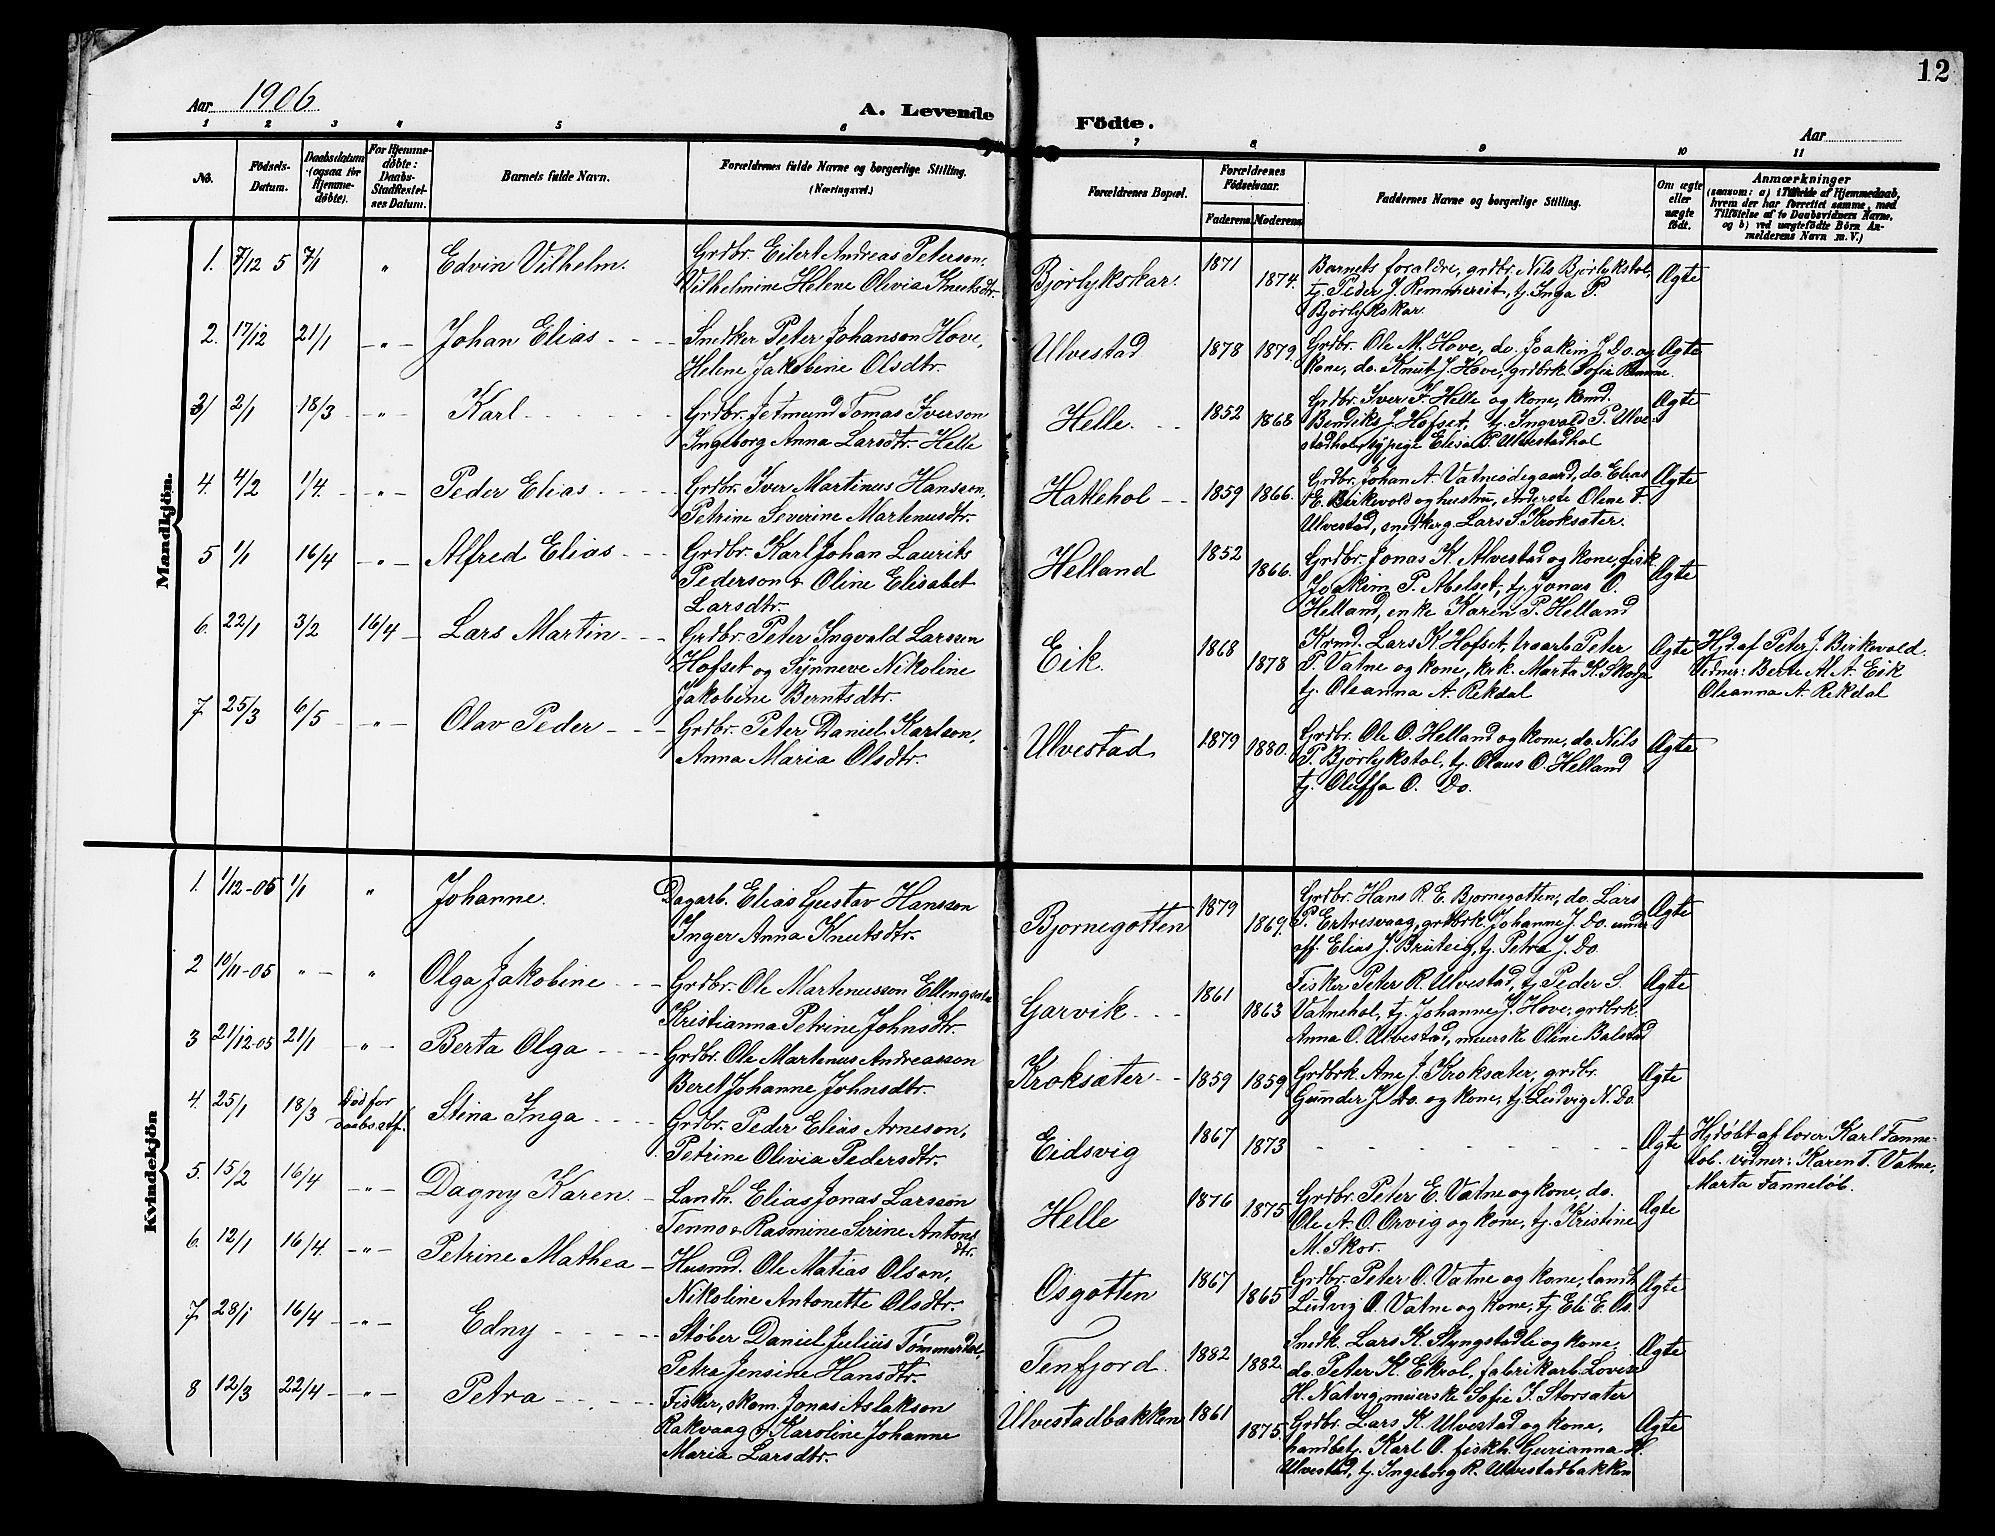 12
Aar 1906
A. Levende Födte.
Aar
1 2 3 4 5 6 7 8 9 10 11
No.
Fødsels-
Datum.
Daabsdatum
(ogsaa for
Hjemme-
døbte).
For Hjemme-
døbte:
Daabs-
Stadfæstel-
ses Datum.
Barnets fulde Navn.
Forældrenes fulde Navne og borgerlige Stilling.
(Næringsvei.)
Forældrenes Bopæl.
Forældrenes
Fødselsaar.
Faderens Moderens
Faddernes Navne og borgerlige Stilling.
Om ægte
eller
uægte
født.
Anmærkninger
(saasom: a) i Tilfælde af Hjemmedaab,
hvem der har forrettet samme, med
Tilføielse af to Daabsvidners Navne,
og b) ved uægtefødte Börn An-
melderens Navn m. V.)
Mandkjön.
1. 7/12 5 7/1 " Edvin Vilhelm.
Grdbr. Eilert Andreas Peterson,
Vilhelmine Helene Olivia Knutsdtr.
Bjørlykskar. 1871 1874.
Barnets foraldre, grdbr. Nils Bjørlykstol,
tj. Peder J. Remmereit, tj. Inga P.
Bjørlykskar.
Ægte
2. 17/12 21/1 -"- Johan Elias
Snedker Peter Johanson Hove,
Helene Jakobine Olsdtr.
Ulvestad 1878 1879.
Grdbr. Ole M. Hove, do. Joakim J. Do. og
kone, do. Knut J. Hove, grdbrk. Sofie Remme.
Ægte
3/ 2/1 18/3 -"- Karl
Grdbr. Jetmund Tomas Iverson
Ingeborg Anna Larsdtr. Helle
Helle. 1852 1868
Grdbr. Iver J. Helle og kone, kmd.
Bendiks J. Hofset, tj. Ingvald P. Ulve-
stadhol, sypige Elisa P. Ulvestadhol
Ægte
4. 4/2 1/4. -"- Peder Elias
Grdbr. Iver Martinus Hansson,
Petrine Severine Martinusdtr.
Hatlehol 1859 1866.
Grdbr. Johan A. Vatnesdegaard, do. Elias
E. Birkevold og hustru, Anderste Oline T.
Ulvestad, snedkerg. Lars S. Kroksæter.
Ægte
5 1/1 16/4 -"- Alfred Elias
Grdbr. Karl Johan Laurits
Pederson & Oline Elisabet
Larsdtr.
Helland 1852 1866.
Grdbr. Jonas K. Alvestad og kone, fisk.
Joakim P. Abelset, tj. Jonas O.
Helland, enke Karen P. Helland
Ægte
6. 22/1 3/2 16/4 Lars Martin
Grdbr. Peter Ingvald Larsson
Hofset og Synneve Nikoline
Jakobine Berntsdtr.
Eik. 1868 1878
Krmd. Lars K. Hofset, traarb. Peter
P. Vatne og kone, krk. Marta K. Skodje
tj. Oleanna A. Rekdal
Ægte
Hjd. af Peter J. Birkevold.
Vidner: Berte M. A. Eik
Oleanna A. Rekdal
7 25/3 6/5 -"- Olav Peder
Grdbr. Peter Daniel Karlson,
Anna Maria Olsdtr.
Ulvestad 1879 1880.
Grdbr. Ole O. Helland og kone, do. Nils
P. Bjørlykstol, tj. Olaus O. Helland
tj. Oluffa O. Do.
Ægte
Kvindekjön
1. 1/12-05 1/1 " Johanne.
Dagarb. Elias Gustav Hansson
Inger Anna Knutsdtr.
Bjornegotten 1879 1869.
Grdbr. Hans R. E. Bjornegotten, do. Lars
P. Ertresvaag, grdbrk. Johanne J. Do. under
off. Elias J. Bruteig, tj. Petra J. Do.
Ægte
2 10/11-05 "- " Olga Jakobine
Grdbr. Ole Martinusson Ellingsæter
Kristianna Petrine Johnsdtr.
Garvik 1861 1863
Fisker Peter R. Ulvestad, tj. Peder S.
Vatnehol, tj. Johanne J. Hove, grdbrk.
Anna O. Ulvestad, meierske Oline Balstad
Ægte
3 21/12-05 21/1 -"- Berta Olga
Grdbr. Ole Martinus Andreasson
Beret Johanne Johnsdtr.
Kroksæter 1859 1859
Grdbrk. Ane J. Kroksæter, grdbr.
Gunder J. Do. og kone, tj. Ludvig N. Do.
Ægte
4. 25/1 18/3 Død før
daabsstf.
Stina Inga
Grdbr. Peder Elias Arneson,
Petrine Olivia Pedersdtr.
Eidsvig 1867 1873
Ægte
Hjdøbt af lærer Karl Tanne-
løb. vidner: Karen T. Vatne,
Marta Tanneløb.
5. 15/2 16/4 -"- Dagny Karen
Landh. Elias Jonas Larsson
Tenno & Rasmine Serine Antons
dtr.
Helle 1876 1875
Grdbr. Peter E. Vatne og kone, do.
Ole A. O. Orvig og kone, tj. Kristine
M. Skor.
Ægte
6. 12/1 16/4. -"- Petrine Mathea
Husmd. Ole Matias Olson,
Nikoline Antonette Olsdtr.
Osgotten 1867 1865
Grdbr. Peter O. Vatne og kone, landh.
Ludvig O. Vatne og kone, tj. Eli E. Os.
Ægte
7 28/1 16/4 -"- Edny
Støber Daniel Julius Tømmerdal,
Petra Jensine Hansdtr.
Tenfjord. 1882 1882.
Snedk. Lars K. Slyngstadli og kone,
do. Peter K. Ekrol, fabrikarb. Lovise
H. Natvig, meierske Sofie I. Storsæter
Ægte
8 12/3 22/4 -"- Petra
Fisker, skom. Jonas Aslakson
Rakvaag & Karoline Johanne
Maria Larsdtr.
Ulvestadbakken 1861 1875.
Grdbr. Lars K. Ulvestad og kone,
handbetj. Karl O. fiskh. Gurianna H.
Ulvestad, tj. Ingeborg R. Ulvestadbakken
Ægte